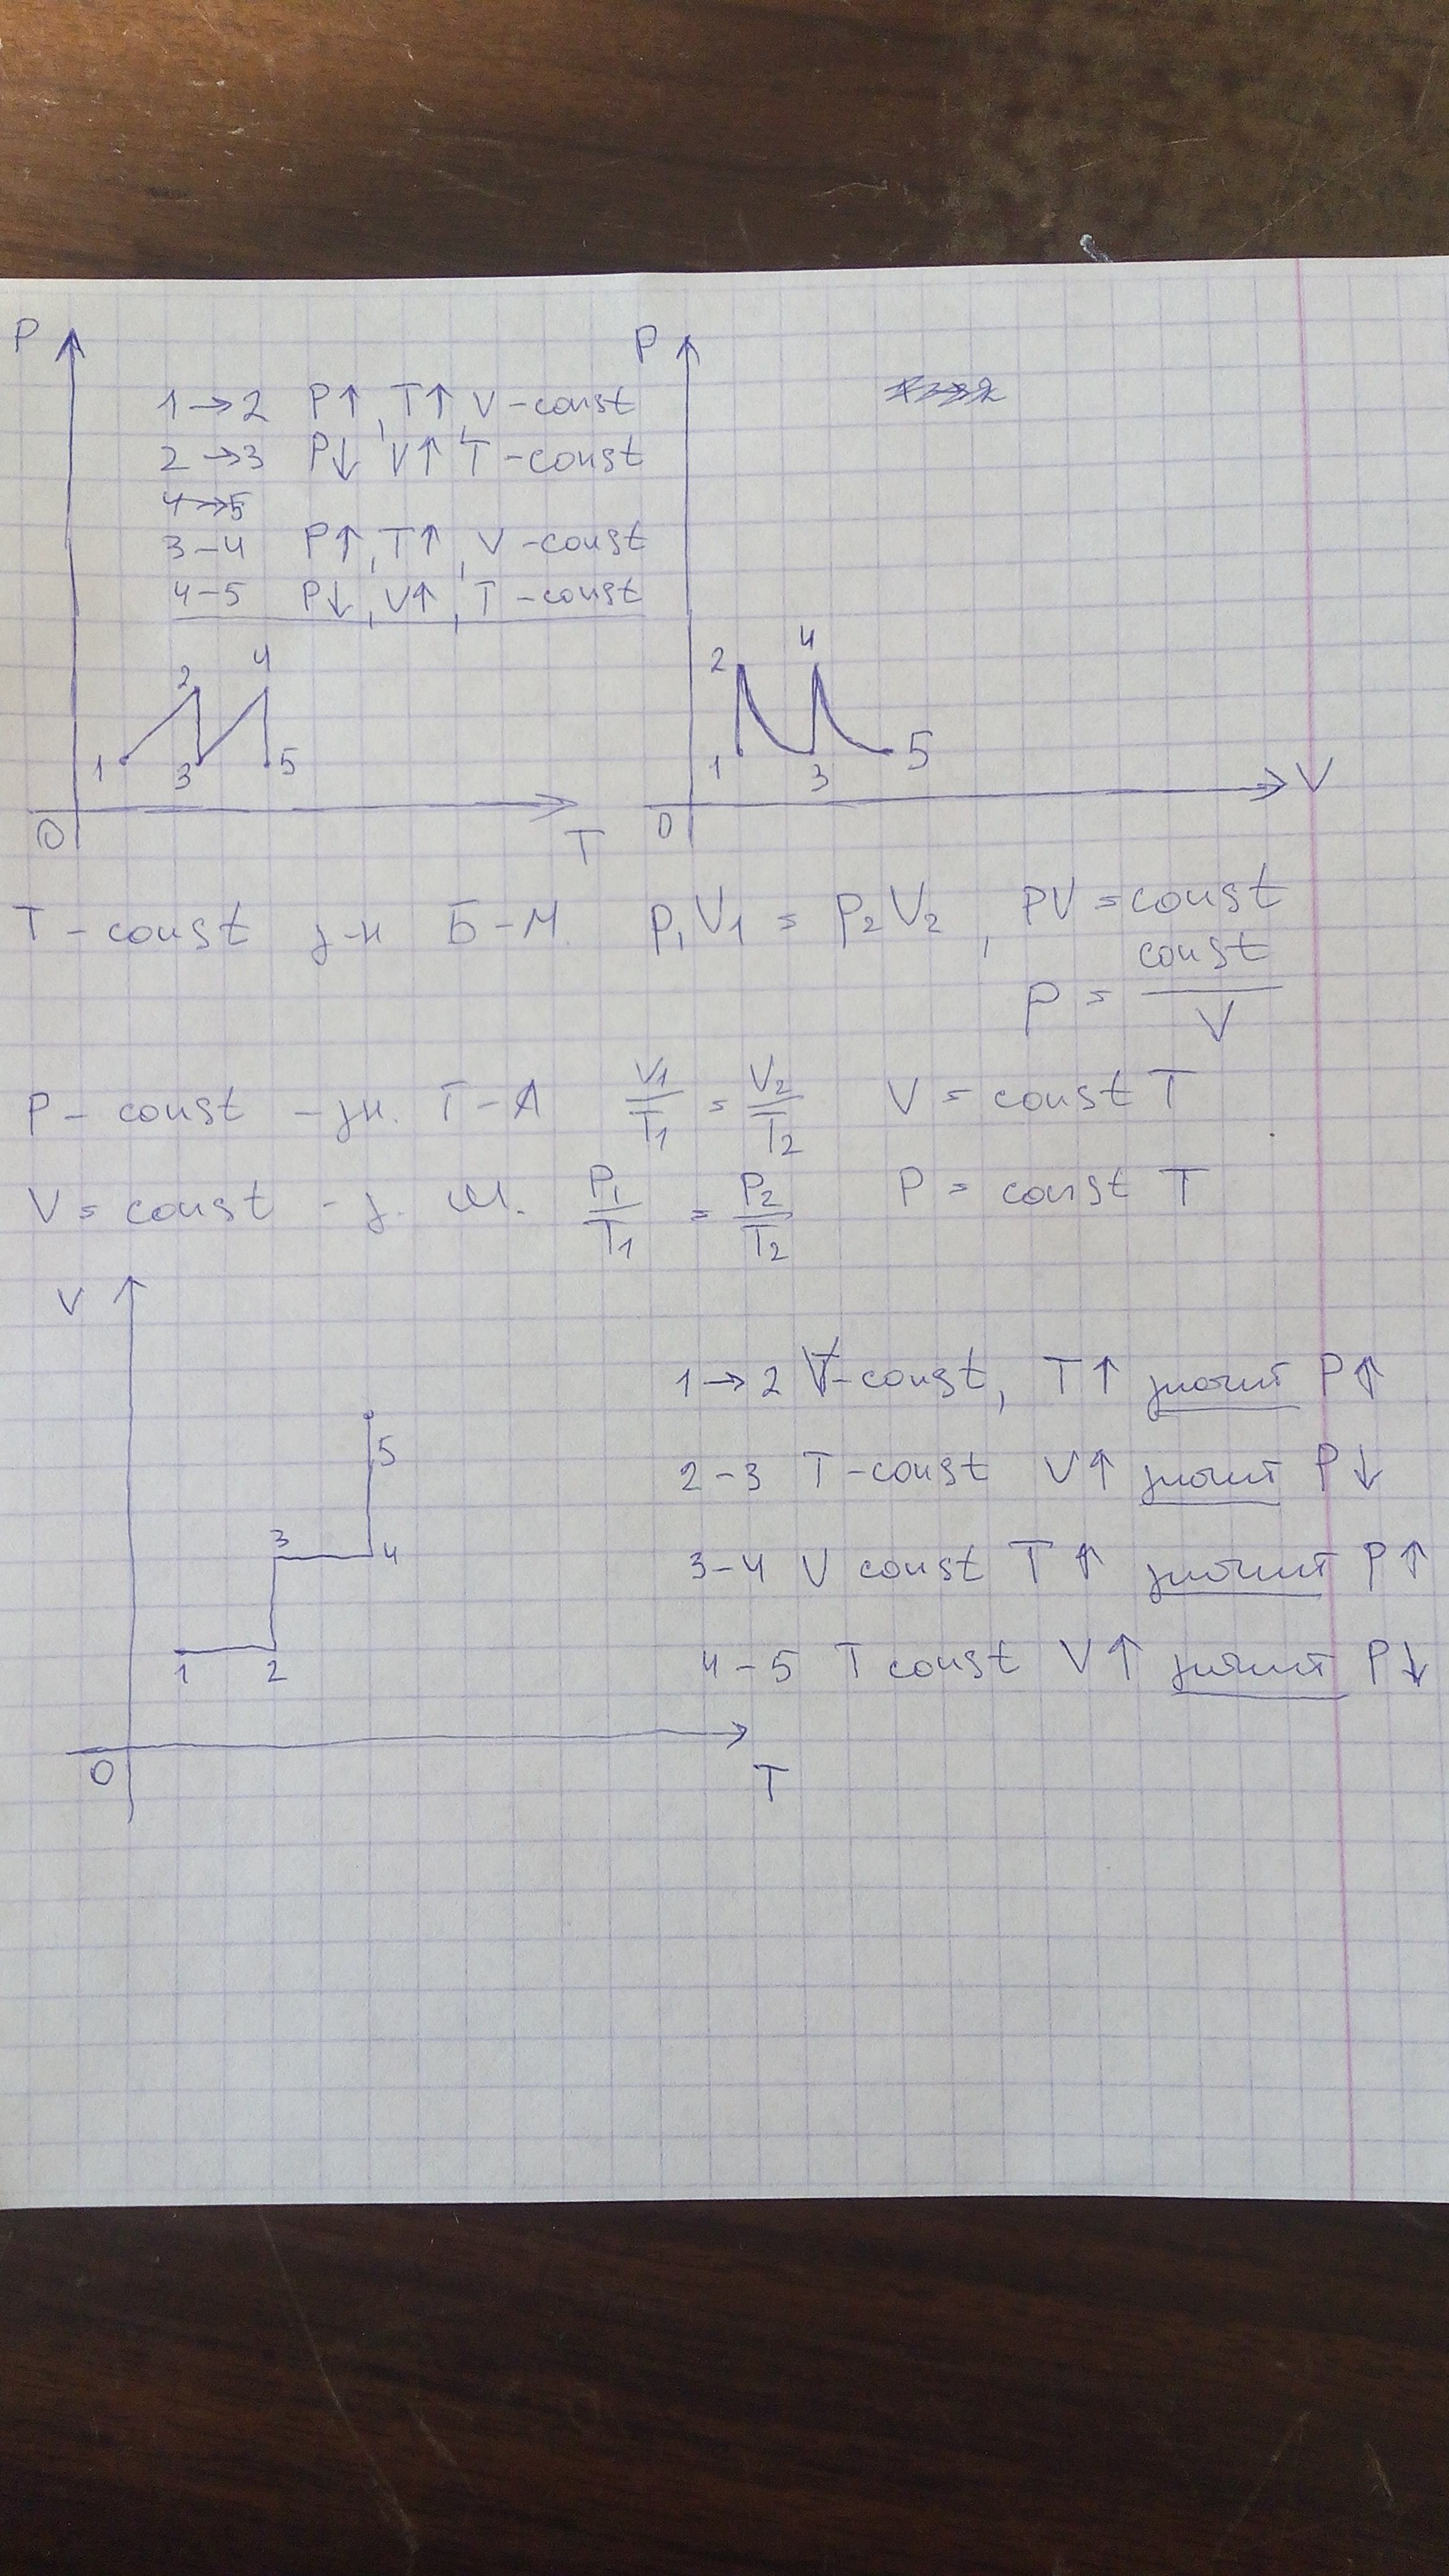 P
1→2 P↑, T↑, V-const
2→3 P↓ V↑ T-const
4→5
3-4 P↑, T↑, V-const
4-5 P↓, V↑, T-const
1 2 3 4 5
0
T
P
2 4
1 3 5
0
V
T-const з-н Б-М. P₁V₁ = P₂V₂, PV = const
P = const/V
P-const - зн. Г-Л V₁/T₁ = V₂/T₂ V = const T
V = const - з. Ш. P₁/T₁ = P₂/T₂ P = const T
V
5
3 4
1 2
0
T
1→2 V-const, T↑ значит P↑
2-3 T-const V↑ значит P↓
3-4 V const T↑ значит P↑
4-5 T const V↑ значит P↓